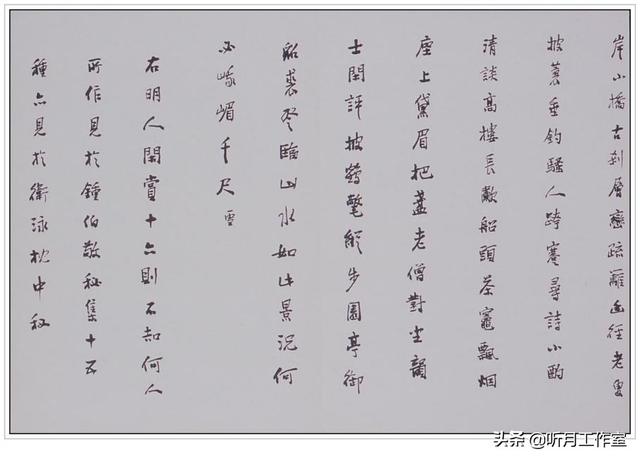 岸小橋古刹層巒疏籬幽徑老叟
披蓑垂釣騷人跨蹇尋詩小酌
清談高樓長歗船頭茶竈飄烟
座上黛眉把盞老僧對坐韻
士閒評披鶴氅縱步園亭御
貂裘登臨山水如此景況何
必峨嵋千尺雪
右明人閒賞十六則不知何人
所作見於鍾伯敬秘集十五
種亦見於衛泳枕中秘
头条@听月工作室